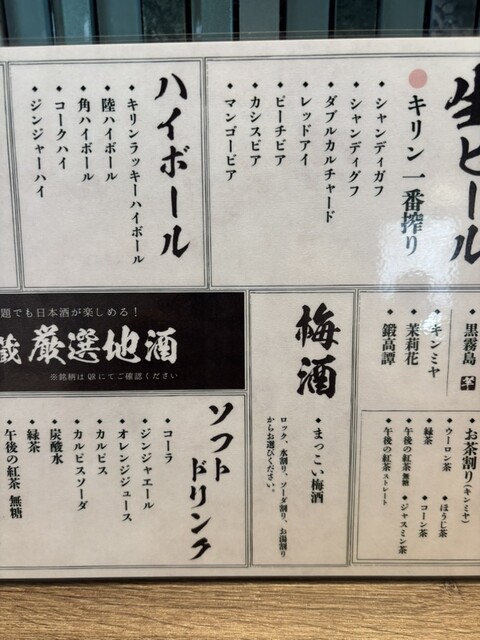 生ビール
キリン一番搾り
シャンディガフ
シャンディグフ
ダブルカルチャード
レッドアイ
ピーチビア
カシスビア
マンゴービア
ハイボール
キリンラッキーハイボール
陸ハイボール
角ハイボール
コークハイ
ジンジャーハイ
黒霧島 芋
キンミヤ
茉莉花
鍛高譚
お茶割り(キンミヤ)
ウーロン茶
ほうじ茶
緑茶
コーン茶
午後の紅茶 無糖
ジャスミン茶
午後の紅茶 ストレート
梅酒
まっこい梅酒
ロック、水割り、ソーダ割り、お湯割り
からお選びください。
題でも日本酒が楽しめる!
蔵 厳選地酒
※銘柄はQRにてご確認ください
ソフト
ドリンク
コーラ
ジンジャエール
オレンジジュース
カルピス
カルピスソーダ
炭酸水
緑茶
午後の紅茶 無糖